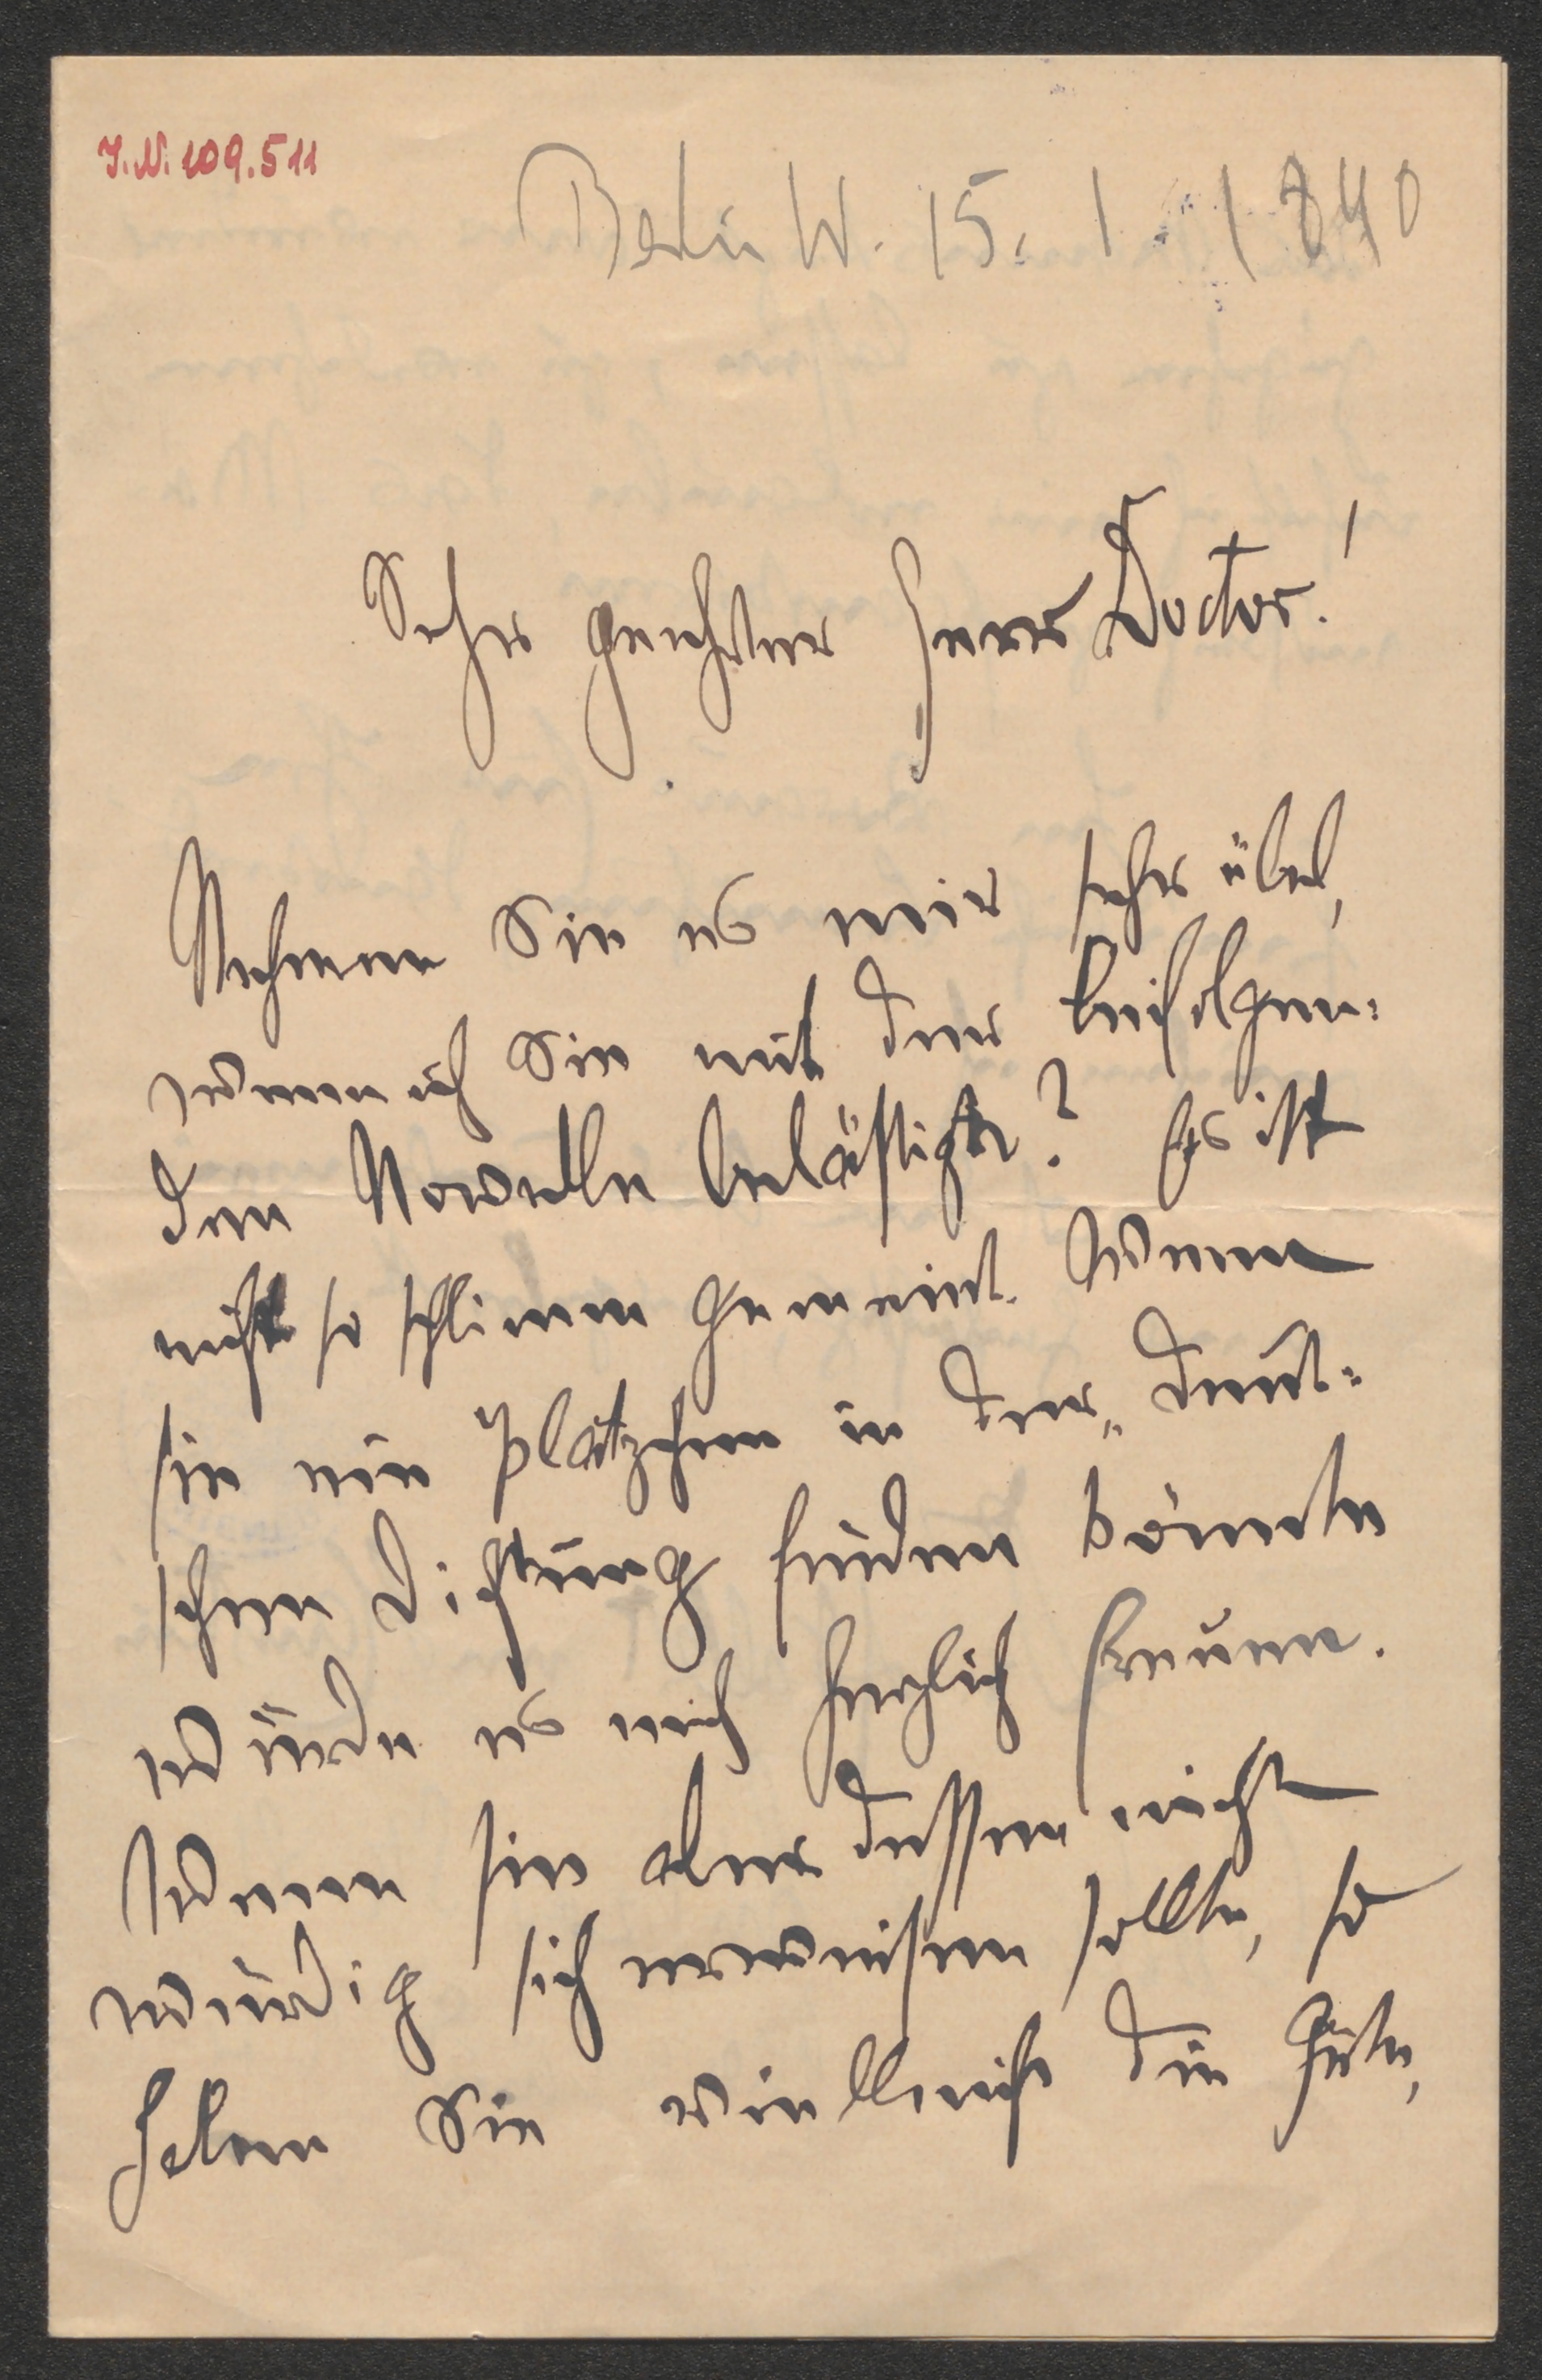 J.N. 109.511
Berlin W. 15. 1. 1890
Sehr geehrter Herr Doctor!
Nehmen Sie es mir sehr übel,
wenn ich Sie mit der beifolgen-
den Novelle belästige? Es ist
nicht so schlimm gemeint. Wenn
sie ein Plätzchen in der „Deut-
schen Dichtung finden könnte
würde es mich herzlich freuen.
Wenn sie aber dessen nicht
würdig sich erweisen sollte, so
haben Sie vielleicht die Güte,